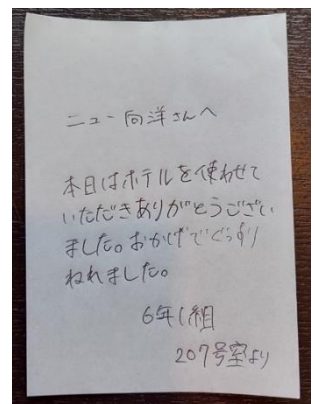 ニュー向洋さんへ
本日はホテルを使わせて
いただきありがとうござい
ました。おかげでぐっすり
ねれました。
6年1組
207号室より